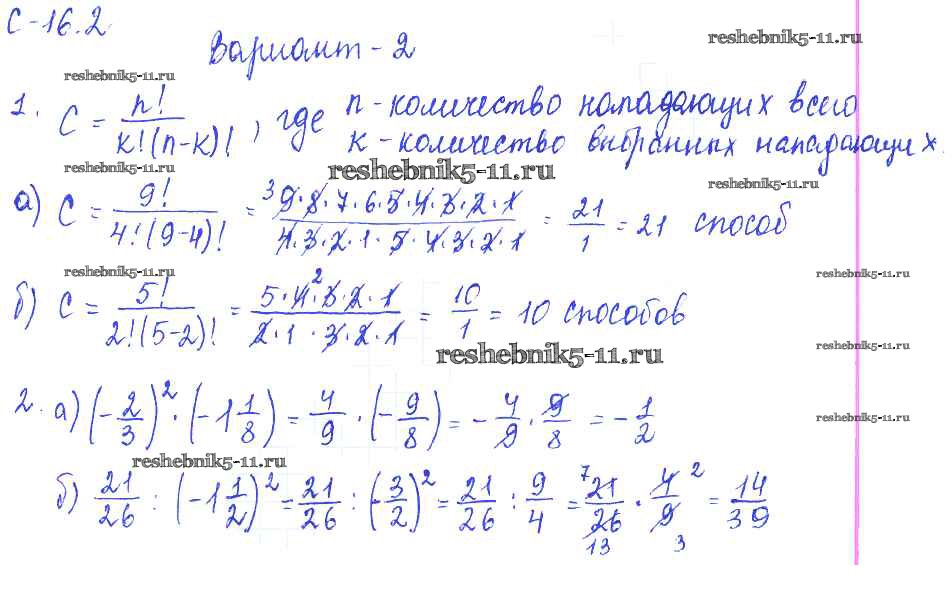 С-16.2
Вариант-2
reshebnik5-11.ru
reshebnik5-11.ru
1. C = n!/k!(n-k)!, где n-количество нападающих всего
k-количество выбранных нападающих.
reshebnik5-11.ru
reshebnik5-11.ru
reshebnik5-11.ru
а) C = 9!/4!(9-4)! = ³9·8·7·6·5·4·3·2·1/4·3·2·1·5·4·3·2·1 = 21/1 = 21 способ
reshebnik5-11.ru
reshebnik5-11.ru
б) C = 5!/2!(5-2)! = 5·4²·3·2·1/2·1·3·2·1 = 10/1 = 10 способов
reshebnik5-11.ru
reshebnik5-11.ru
2. а) (-2/3)²·(-1 1/8) = 4/9·(-9/8) = -4/9·9/8 = -1/2
reshebnik5-11.ru
reshebnik5-11.ru
б) 21/26 : (-1 1/2)² = 21/26 : (-3/2)² = 21/26 : 9/4 = ⁷21/26 13 · 4²/9 3 = 14/39